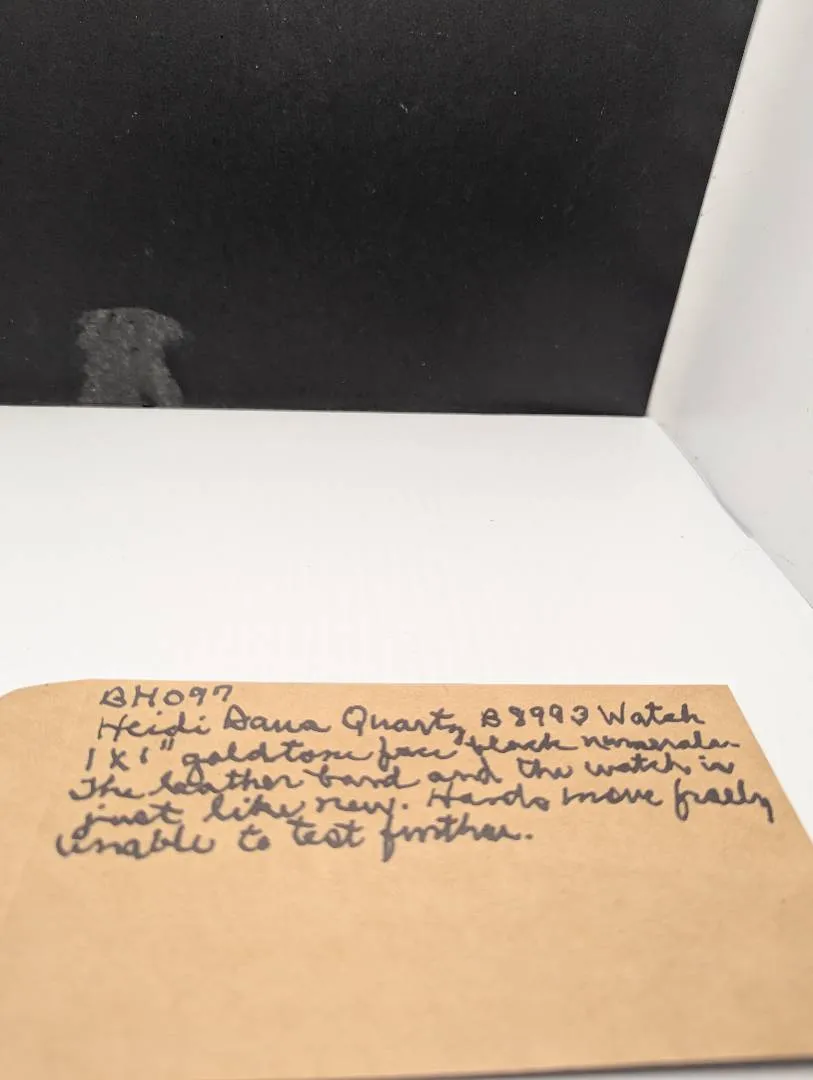 BH097
Heidi Dana Quartz B8993 Watch
1 x 1" goldtone face black numerals.
The leather band and the watch is
just like new. Hands move freely
unable to test further.